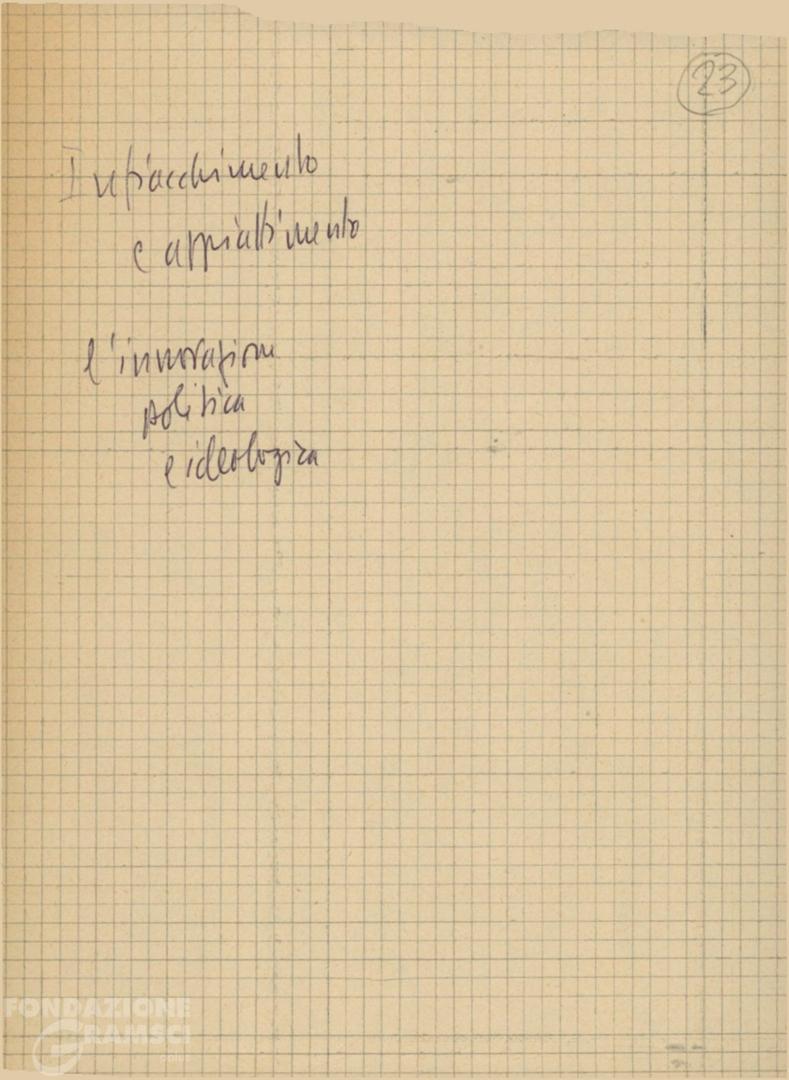 23
Infiacchimento
e appiattimento
l'innovazione
politica
e ideologica
FONDAZIONE
GRAMSCI